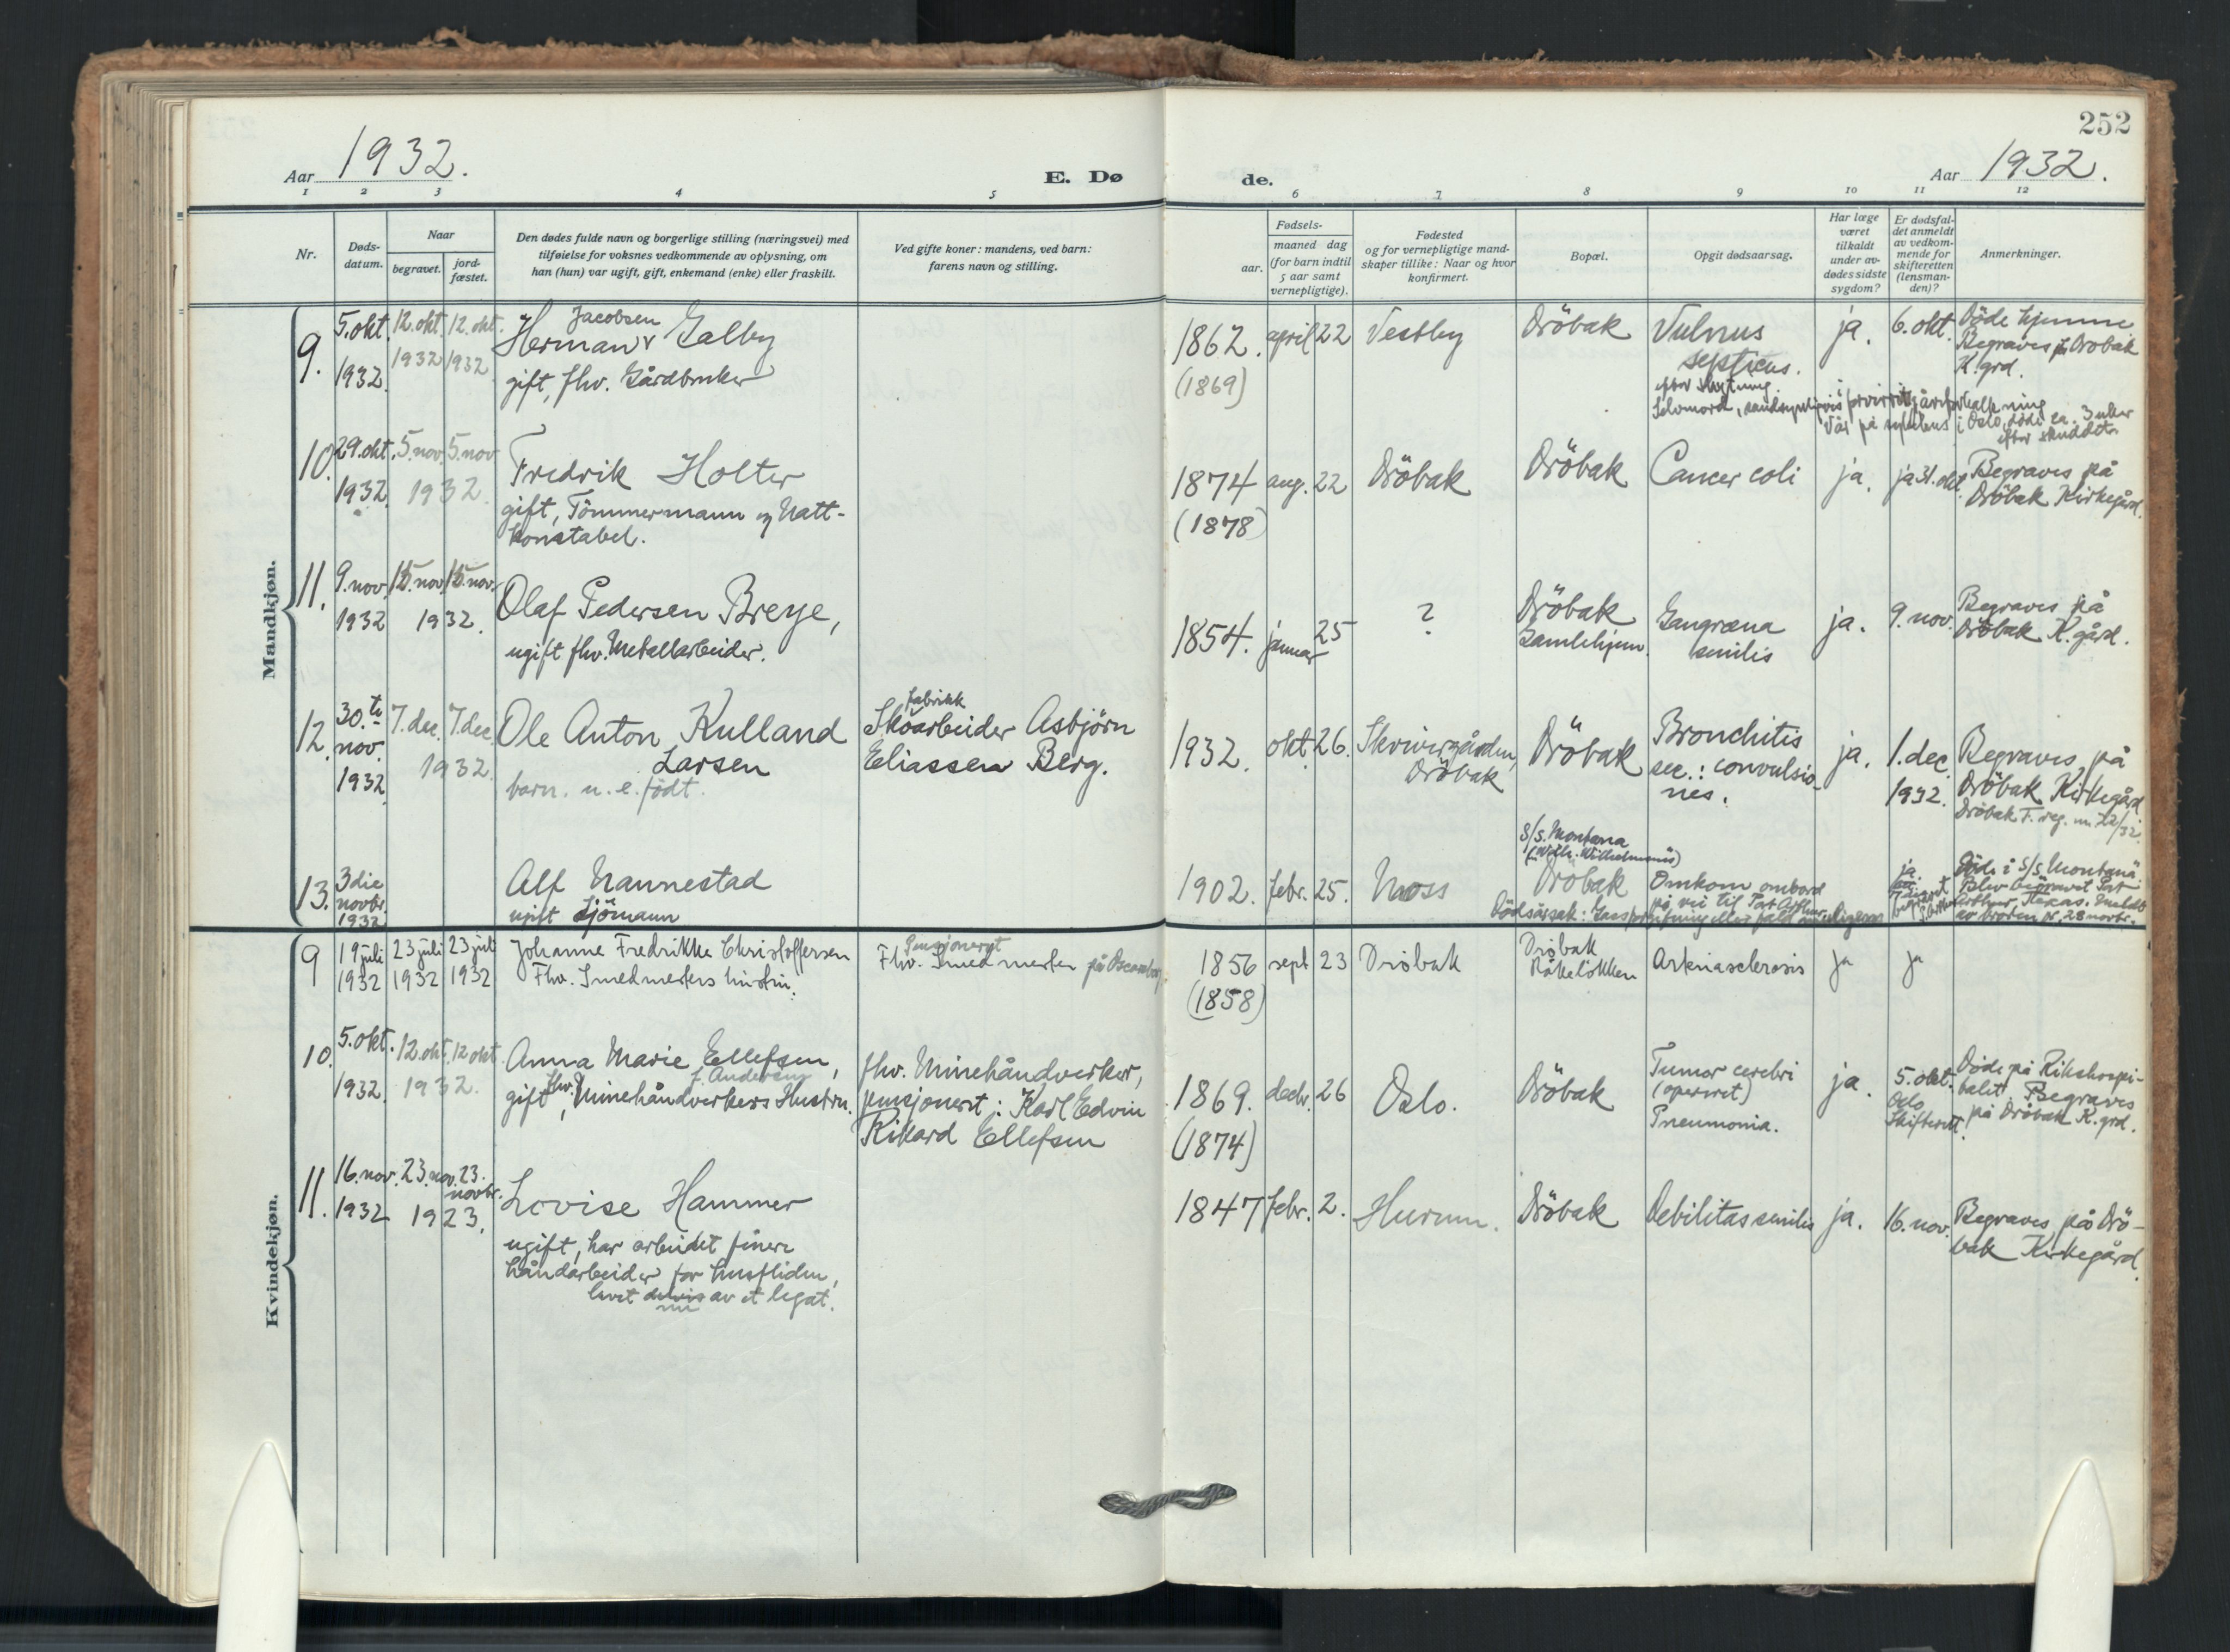 252
Aar 1932.
E. Dø
de.
Aar 1932.
1 2 3 4 5 6 7 8 9 10 11 12
Nr.
Døds-
datum.
Naar
begravet.
jord-
fæstet.
Den dødes fulde navn og borgerlige stilling (næringsvei) med
tilføielse for voksnes vedkommende av oplysning, om
han (hun) var ugift, gift, enkemand (enke) eller fraskilt.
Ved gifte koner: mandens, ved barn:
farens navn og stilling.
Fødsels-
aar.
maaned dag
(for barn indtil
5 aar samt
vernepligtige).
Fødested
og for vernepligtige mand-
skaper tillike: Naar og hvor
konfirmert.
Bopæl.
Opgit dødsaarsag.
Har læge
været
tilkaldt
under av-
dødes sidste
sygdom?
Er dødsfal-
det anmeldt
av vedkom-
mende for
skifteretten
(lensman-
den)?
Anmerkninger.
Mandkjøn.
9.
5. okt.
1932.
12. okt
1932
12. okt.
1932
Jacobsen
Herman Galby
gift, fhv. Gårdbruker
1862.
(1869)
april 22
Vestby
Dröbak
Vulnus
septicus.
efter skytning.
Selvmord,
ja.
6. okt.
Döde hjemme
Begraves på Dröbak
K.grd.
i Oslo, döde ca. 3 uker
efter skuddet
10.
29. okt.
1932.
5. nov. 5. nov
1932.
Fredrik Holter
gift, Tömmermann og Natt-
konstabel.
1874
(1878)
aug. 22
Dröbak
Dröbak
Cancer coli
ja.
ja 31. okt.
Begraves på
Dröbak Kirkegård.
11.
9. nov.
1932
15. nov. 15. nov.
1932.
Olaf Pedersen Breye,
ugift fhv. Metallarbeider.
1854.
januar 25
?
Dröbak
Gamlehjem.
Gangræna
senilis
ja.
9. nov.
Begraves på
Dröbak K. gård.
12.
30. te
nov.
1932
7. dec. 7. dec.
1932.
Ole Anton Kulland
Larsen
barn. u. e. födt.
fabrikk
Skoarbeider Asbjörn
Eliassen Berg.
1932.
okt. 26.
Skrivergården,
Dröbak
Dröbak
Bronchitis
sec.: convulsio-
nes.
ja.
1. dec.
1932.
Begraves på
Dröbak Kirkegård
Dröbak F. reg. nr. 22/32.
13.
3die
novbr.
1932
Alf Nannestad
ugift Sjömann
1902.
febr. 25.
Moss
S/s. Montana
(Wilh. Wilhelmsens)
Dröbak
Omkom ombord
på vei til Port Arthur
Dödsårsak: Gassforgiftning eller fall
ja.
Döde i S/s Montana.
Blev begravet Port
Arthur, Texas. Meldt
av broren pr. 28 novbr.
Kvindekjøn.
9
19 juli
1932
23 juli
1932
23 juli
1932
Johanne Fredrikke Christoffersen
Fhv. Smedmesters hustru.
Pensjonert
Fhv. Smedmester på Oscarsborg
1856
(1858)
sept 23
Dröbak
Dröbak
Råkelökken
Arteriasclerosis
ja
ja
10.
5. okt.
1932.
12. okt. 12 okt
1932.
Anna Marie Ellefsen,
f. Andersen
gift, fhv. Minehåndverkers Hustru.
fhv. Minehåndverker,
pensjonert: Karl Edvin
Rikard Ellefsen
1869.
(1874)
decbr. 26
Oslo.
Dröbak
Tumor cerebri
(operert)
Pneumonia.
ja.
5. okt.
Oslo
Skifterett.
Döde på Rikshospi-
talet. Begraves
på Dröbak K. grd.
11.
16. nov.
1932
23. nov. 23.
novbr.
1923.
Lovise Hammer
ugift, har arbeidet finere
håndarbeider for husfliden,
levet delvis av et legat.
1847
febr. 2.
Hurum.
Dröbak
Debilitas senilis
ja.
16. nov.
Begraves på Drö-
bak Kirkegård.